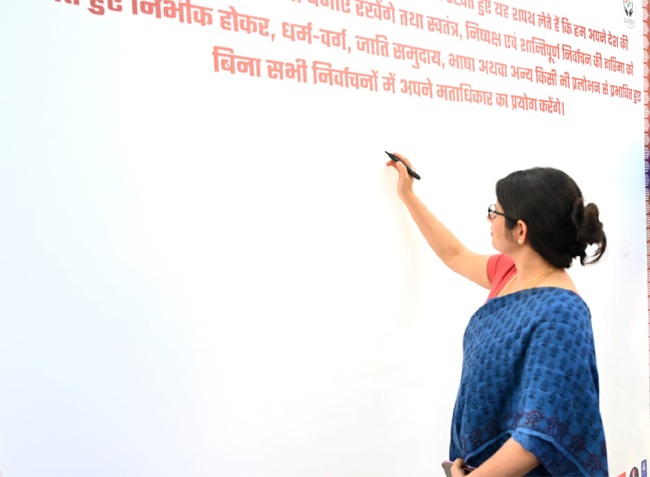 हुए यह शपथ लेते हैं कि हम अपने देश की
बनाए रखेंगे तथा स्वतंत्र, निष्पक्ष एवं शान्तिपूर्ण निर्वाचन की गरिमा को
हुए निर्भीक होकर, धर्म-वर्ग, जाति समुदाय, भाषा अथवा अन्य किसी भी प्रलोभन से प्रभावित हुए
बिना सभी निर्वाचनों में अपने मताधिकार का प्रयोग करेंगे।